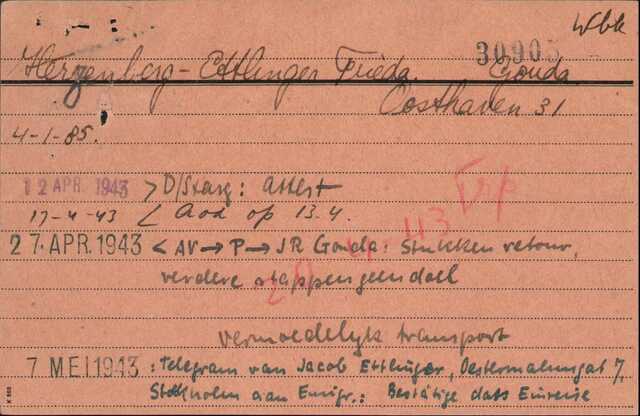 Wbk
30905
Herzenberg-Ettlinger Frieda. Gouda
Oosthaven 31
4-1-85.
12 APR. 1943 > D/Starg: attest
17-4-43 < Aod op 13.4.
27 APR. 1943 < AV → P → JR Gouda: Stukken retour,
verdere stappen geen doel
20 4 43 Trp
vermoedelyk transport
7 MEI 1943 : Telegram van Jacob Ettlinger, Oestermalmsgat 7,
Stockholm aan Emigr.: Bestätige dass Einreise
K 500